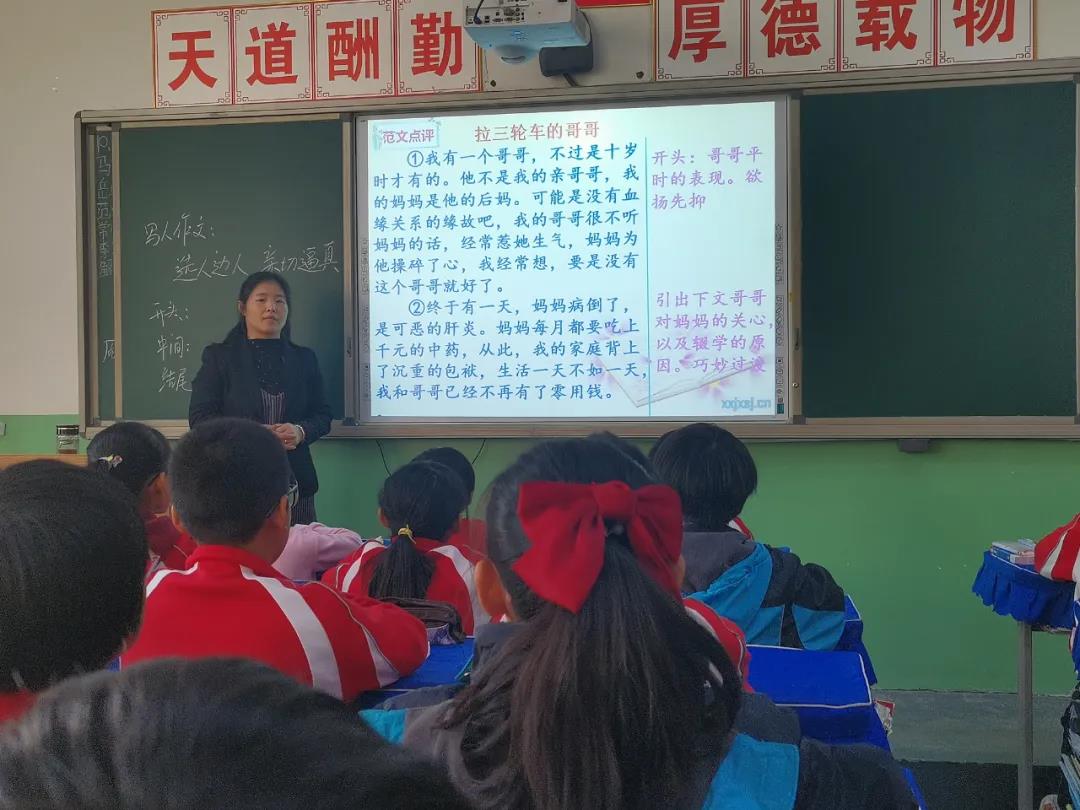 天道酬勤
厚德载物
写人作文：
选人边人 亲切逼真
开头：
中间：
结尾
范文点评
拉三轮车的哥哥
①我有一个哥哥，不过是十岁
时才有的。他不是我的亲哥哥，我
的妈妈是他的后妈。可能是没有血
缘关系的缘故吧，我的哥哥很不听
妈妈的话，经常惹她生气，妈妈为
他操碎了心，我经常想，要是没有
这个哥哥就好了。
②终于有一天，妈妈病倒了，
是可恶的肝炎。妈妈每月都要吃上
千元的中药，从此，我的家庭背上
了沉重的包袱，生活一天不如一天，
我和哥哥已经不再有了零用钱。
开头：哥哥平
时的表现。欲
扬先抑
引出下文哥哥
对妈妈的关心，
以及辍学的原
因。巧妙过渡
xxjxsj.cn